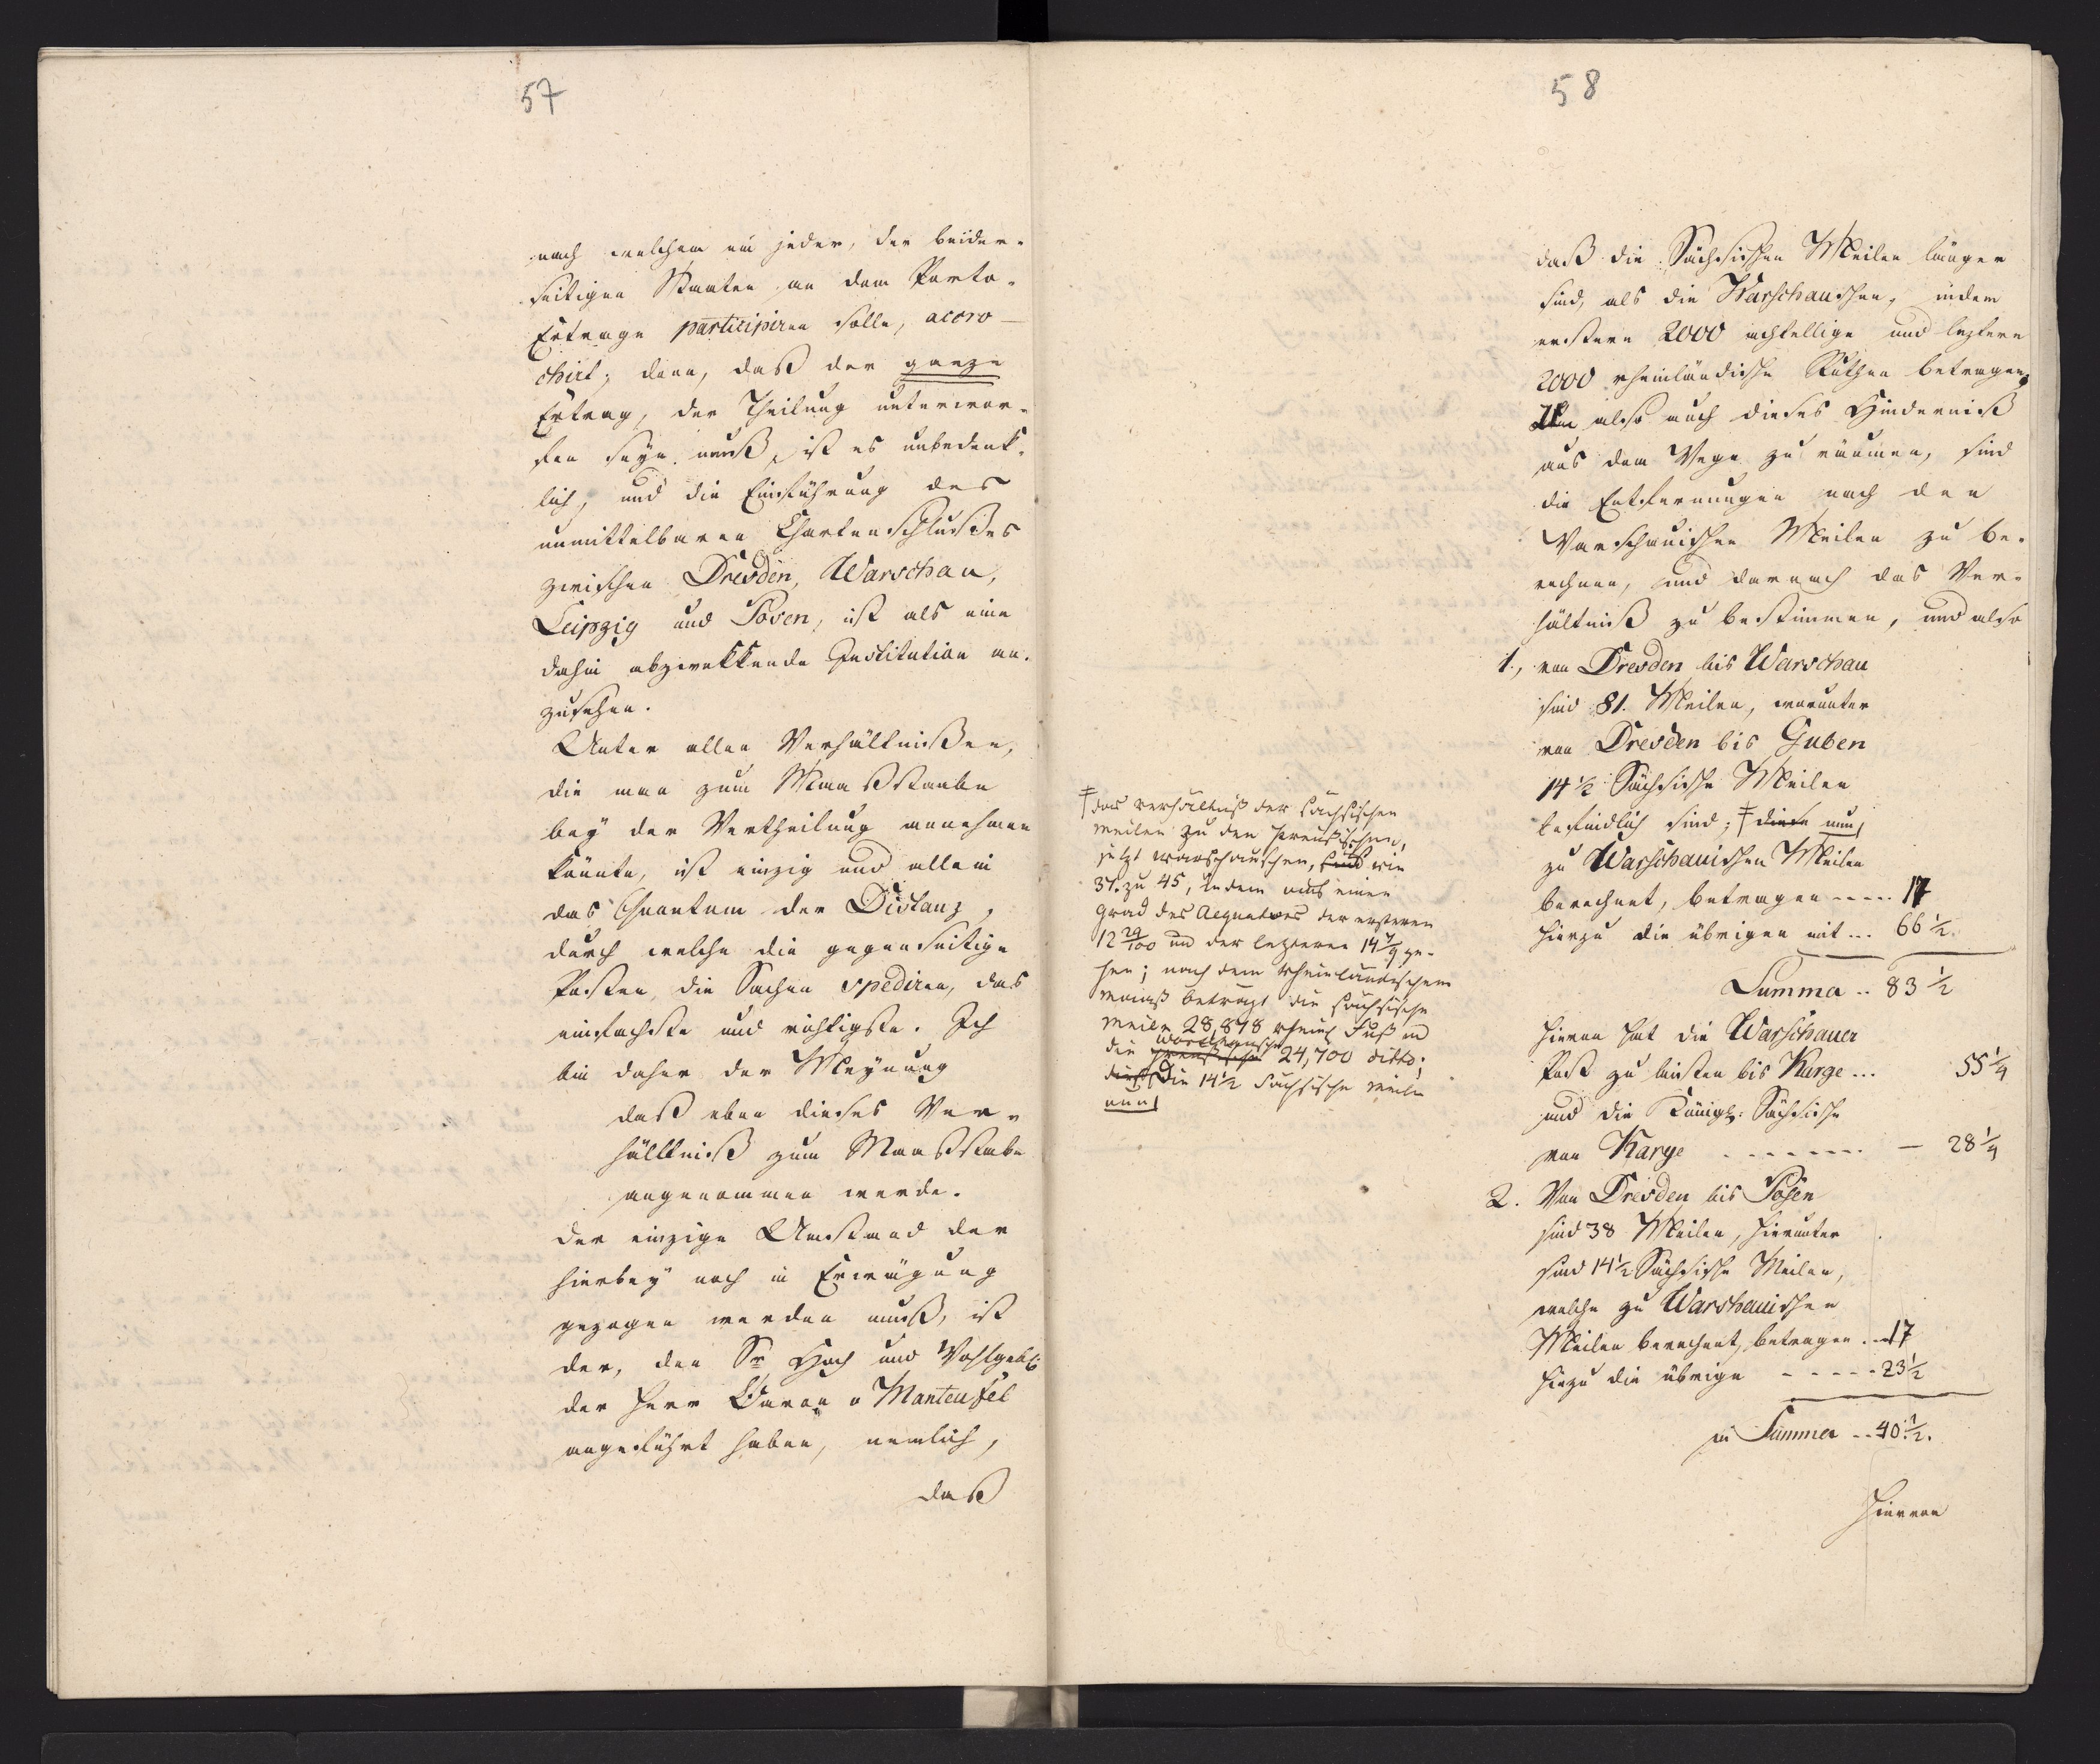 57
nach welchem ein jeder, der beider-
seitigen Staaten an dem Porto-
Ertrage participiren solle, accro-
chirt; denn, daß der ganze
Ertrag, der Theilung unterwor-
fen seyn muß, ist es unbedenk-
lich, und die Einführung des
unmittelbaren Chartenschlußes
zwischen Dresden, Warschau,
Leipzig und Posen, ist als eine
dahin abzwekkende Institution an-
zusehen.
Unter allen Verhältnißen,
die man zum Maaßstaabe
bey der Vertheilung annehmen
könnte, ist einzig und allein
das Quantum der Distanz,
durch welche die gegenseitige
Posten, die Sachen spediren, das
einfachste und richtigste. Ich
bin daher der Meynung
daß eben dieses Ver-
hältniß zum Maaßstabe
angenommen werde.
der einzige Umstand der
hierbey noch in Erwägung
gezogen werden muß, ist
der, den Sr Hoch und Wohlgeb:
der Herr Baron v Manteufel
angeführt haben, nemlich,
daß
58
daß die Sächsischen Meilen länger
sind, als die Warschauschen, indem
erstere 2000 achtellige und leztere
2000 rheinländische Ruthen betragen,
Um also auch dieses Hinderniß
aus dem Wege zu räumen, sind
die Entfernungen nach den
Warschauischen Meilen zu be-
rechnen, und darnach das Ver-
hältniß zu bestimmen, und also
1., von Dresden bis Warschau
sind 81. Meilen, worunter
von Dresden bis Guben
14 1/2 Sächsische Meilen
befindlich sind; ‡ diese nun
zu Warschauischen Meilen
berechnet, betragen ----- 17
hierzu die übrigen mit ... 66 1/2.
Summa .. 83 1/2
hievon hat die Warschauer
Post zu leisten bis Karge ... 55 1/4
und die Königl: Sächsische
von Karge ....... — 28 1/4
2. Von Dresden bis Posen
sind 38 Meilen, hierunter
sind 14 1/2 Sächsische Meilen,
welche zu Warschauischen
Meilen berechnet, betragen .. 17
hiezu die übrige - - - - - 23 1/2
in Summa .. 40 1/2.
hievon
‡ das verhältniß der sächsischen
meilen zu den Preußischen,
jetzt warschauschen, sind wie
37. zu 45, indem auf einen
grad des Aequators der ersteren
12 29/100 und der lezteren 14 7/9 ge-
hen; nach dem rheinländischem
maaß beträgt die sächsische
meile 28,818 rheinl Fuß und
warschausche
die preußische 24,700 ditto;
diese die 14 1/2 sächsische meile
nun